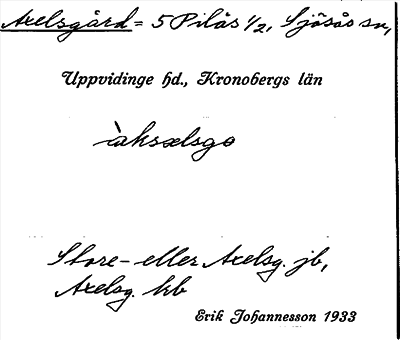 Axelsgård = 5 Pilås 1/2, Sjösås sn,
Uppvidinge hd., Kronobergs län
àksælsgo
Store- eller Axelsg. jb,
Axelsg. kb
Erik Johannesson 1933